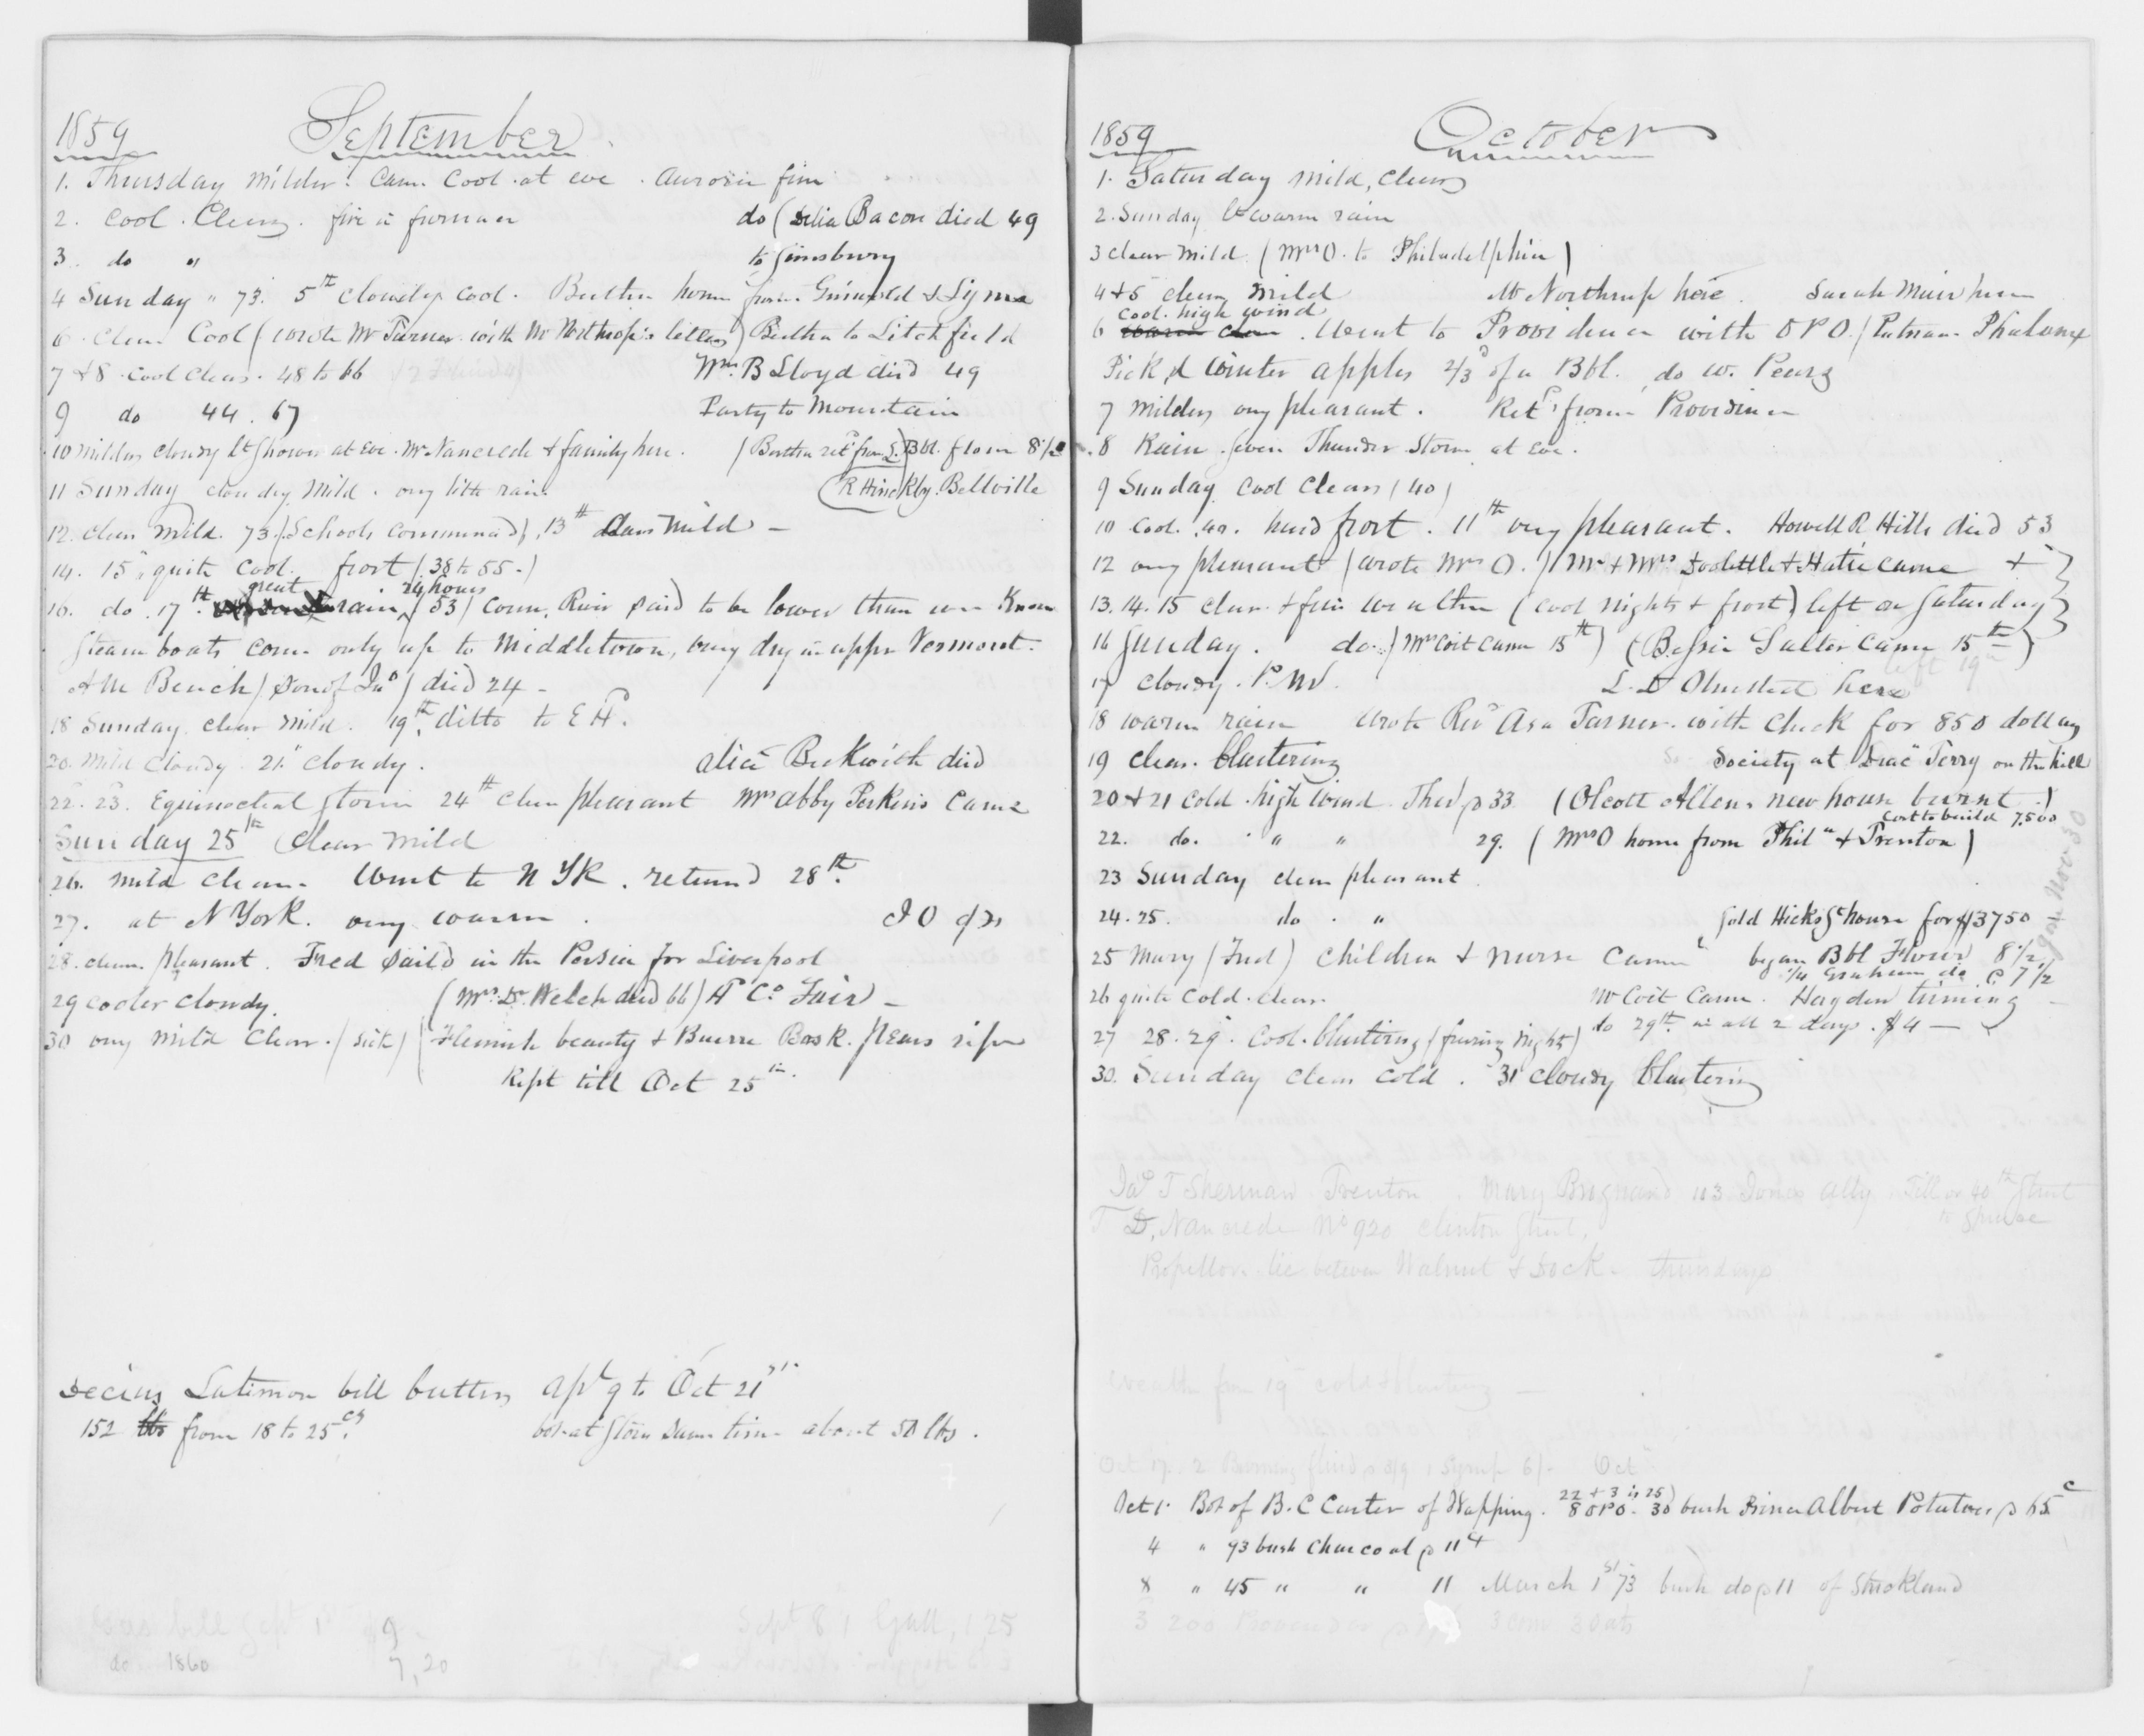 1859 September
1. Thursday milder. Cam. Cool at eve. Aurora fine
2. Cool. Clear. fire in furnace do (Delia Bacon died 49
3. do " to Simsbury
4 Sunday " 73. 5th cloudy cool. Bertha home from Griswold & Lyme
6 Clear Cool (wrote Mr Turner with Mr Northrop's letters) Bertha to Litchfield
7 & 8 Cool Clear. 48 to 66 Wm. B Lloyd died 49
9 do 44. 67 Party to Mountain
10 milder cloudy lt shower at eve. Mr Nancrede & family here. (Bertha retd from L.) Bbl. flour 8 1/2
11 Sunday cloudy mild. very little rain. (R Hinckley. Bellville
12. clear mild. 73. (Schools commenced). 13th clear mild –
14. 15" quite cool. frost (38 to 55-)
great 24 hours
16. do. 17th. rain (53) Conn. River said to be lower than ever known
Steam boats come only up to Middletown, very dry in upper Vermont.
A M Beach (son of Jno) died 24 -
18 Sunday clear mild. 19th. ditto to E H.
20. mild cloudy. 21" cloudy. Alice Beckwith died
22. 23. Equinoctial storm 24th clear pleasant Mrs Abby Perkins came
Sunday 25th Clear mild
26. mild clear. Went to N Yk. returned 28th.
27. at N York. very warm.
28. clear. pleasant. Fred sail'd in the Persia for Liverpool
29 cooler cloudy. (Mrs. Dr. Welch died 66) H Co Fair –
30 very mild clear. (sick) (Flemish beauty & Buerre Bosk. pears ripe
Kept till Oct 25th.
Decius Latimer bill butter Apl 9 to Oct 21st.
152 lbs from 18 to 25 cts. bot at store same time about 50 lbs.
Gas bill Sept 1st 9
do 1860 7,20
Sept 8 1 Gall, 1,25
1859 October
1. Saturday mild, clear
2. Sunday lt warm rain
3 clear mild. (Mrs O. to Philadelphia)
4 & 5 clear mild Mr Northrup here. Sarah Muir here
cool. high wind
6 warm clear. Went to Providence with O P O. (Putnam Phalanx
Pick,d winter apples 2/3d of a Bbl. do W. Pears
7 milder very pleasant. Retd from Providence
8 Rain. Severe Thunder Storm at eve.
9 Sunday. cool clear (40)
10 cool. 40. hard frost. 11th very pleasant. Howell R. Hills died 53
12 very pleasant (wrote Mrs O.) Mr & Mrs Doolittle & Hatie came +
13. 14. 15 clear & fine weather (cool nights & frost) left on Saturday
16 Sunday. do. (Mrs Coit came 15th) (Bessie Salter came 15th)
left 19th
17 cloudy. P.M. L. D Olmsted here
18 warm rain Wrote Revd Asa Turner with check for 850 dollars
19 clear. blustering Society at Deac Terry on the hill
20 & 21 cold. high wind Ther. 33 (Olcott Allens new house burnt.)
cost to build 7,500
22. do. " " 29. (Mrs O home from Phila & Trenton)
23 Sunday clear pleasant.
24. 25. do. " Sold Hicks St house for $13750
gone Nov 30
25 Mary (Fred) children & nurse came began Bbl Flour 8 1/2
1/4 Graham do @ 7 1/2
26 quite cold. clear. Mr Coit came. Hayden triming –
27 28. 29. Cool. blustering (freezing nights) do 29th in all 2 days. $4 –
30. Sunday clear cold. 31 cloudy blustering
Jas T Sherman Trenton. Mary 113 Jones Ally. Till or 40th Street
to Spruce
T D. Nancrede No 920 Clinton Street.
Propellor lie between Walnut & Dock. thursdays
weather from 19 cold & blustering –
Oct 17. 2 Burning fluid 1 Syrup 6/- Oct
22 & 3 is 25)
Oct 1. Bot of B. C Carter of Wapping. 8 OPO. 30 bush Prince Albert Potatoes p 65c
4 " 93 bush Charcoal p 11 cts
8 " 45 " " 11 March 1st 73 bush do p 11 of Strickland
3 200